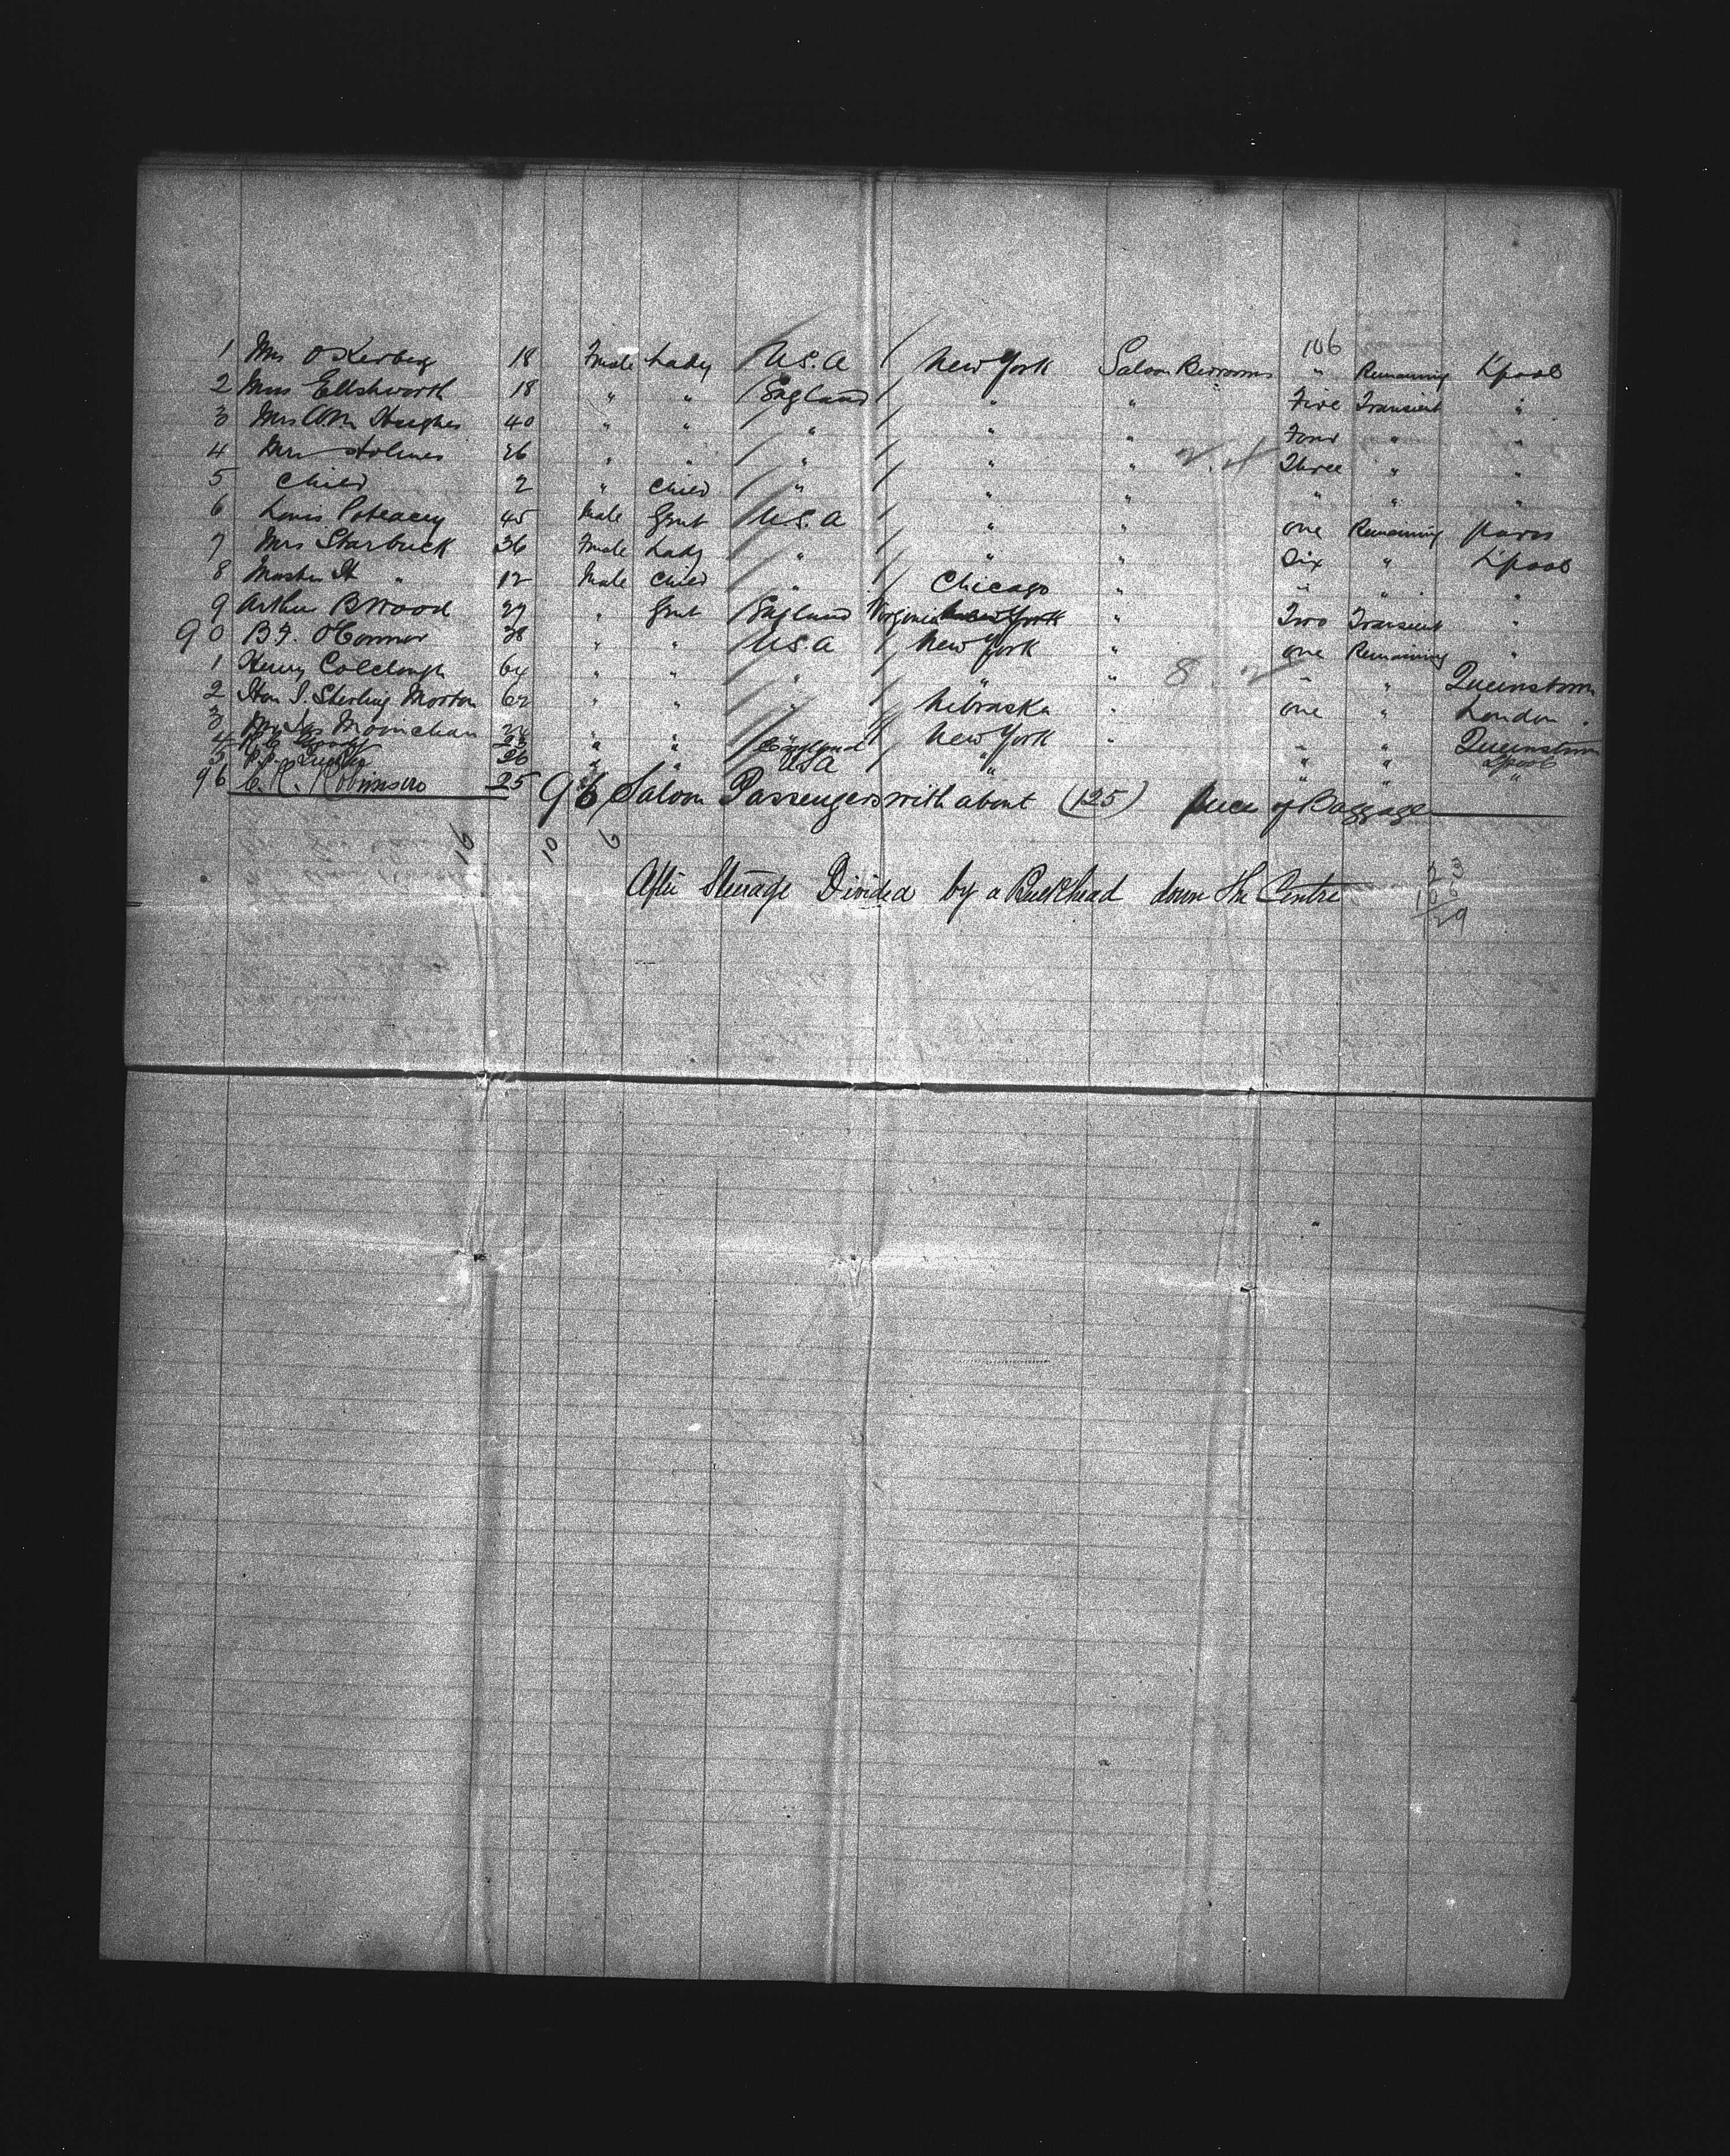 106
1 Mrs Oskerberg 18 Female Lady U.S.A New York Saloon Bedrooms " Remaining L'pool
2 Mrs Ellshworth 18 " " England " " Five Transient "
3 Mrs A.M. Hughes 40 " " " " " Four " "
4 Mrs Holmes 26 " " " " " Three " "
5 Child 2 " Child " " " " " "
6 Louis 45 Male Gent U.S.A " " one Remaining Paris
7 Mrs Starbuck 36 Female Lady " " " Six " L'pool
8 Master H " 12 Male Child " Chicago " " " "
9 Arthur B Wood 29 " Gent England Virginia New York " Two Transient "
90 B.J. O'Connor 38 " " U.S.A New York " one Remaining "
1 Henry Colclough 64 " " " " " 8 2 " " Queenstown
2 Hon J. Sterling Morton 62 " " " Nebraska " one " London
3 Moinehan 24 " " New York " " " Queenstown
4 23 " " England " " L'pool
5 26 " " USA " " " "
96 C. R. Robinson 25
96 Saloon Passengers with about (125) pieces of Baggage
10 6
After Steerage Divided by a Bulkhead down the Centre
23
106
129